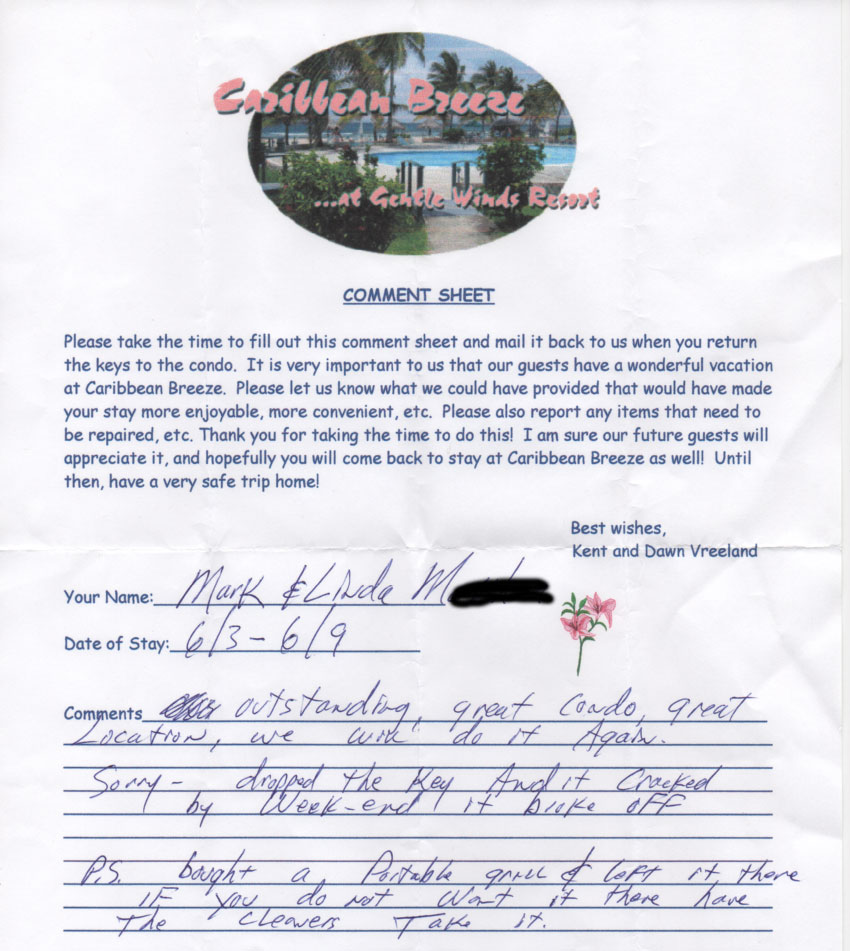 Caribbean Breeze
...at Gentle Winds Resort
COMMENT SHEET
Please take the time to fill out this comment sheet and mail it back to us when you return
the keys to the condo. It is very important to us that our guests have a wonderful vacation
at Caribbean Breeze. Please let us know what we could have provided that would have made
your stay more enjoyable, more convenient, etc. Please also report any items that need to
be repaired, etc. Thank you for taking the time to do this! I am sure our future guests will
appreciate it, and hopefully you will come back to stay at Caribbean Breeze as well! Until
then, have a very safe trip home!
Best wishes,
Kent and Dawn Vreeland
Your Name: Mark & Linda M
Date of Stay: 6/3 - 6/9
Comments outstanding, great condo, great
Location, we will do it Again.
Sorry - dropped the Key And it Cracked
by Week-end it broke off
P.S. bought a Portable grill & left it there
IF you do not want it there have
The cleaners Take it.